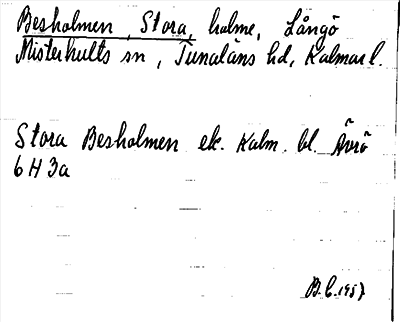 Besholmen, Stora, holme, Långö
Misterhults sn, Tunaläns hd, Kalmar l.
Stora Besholmen ek. Kalm. bl. Ävrö
6 H 3a
B.C. 1957